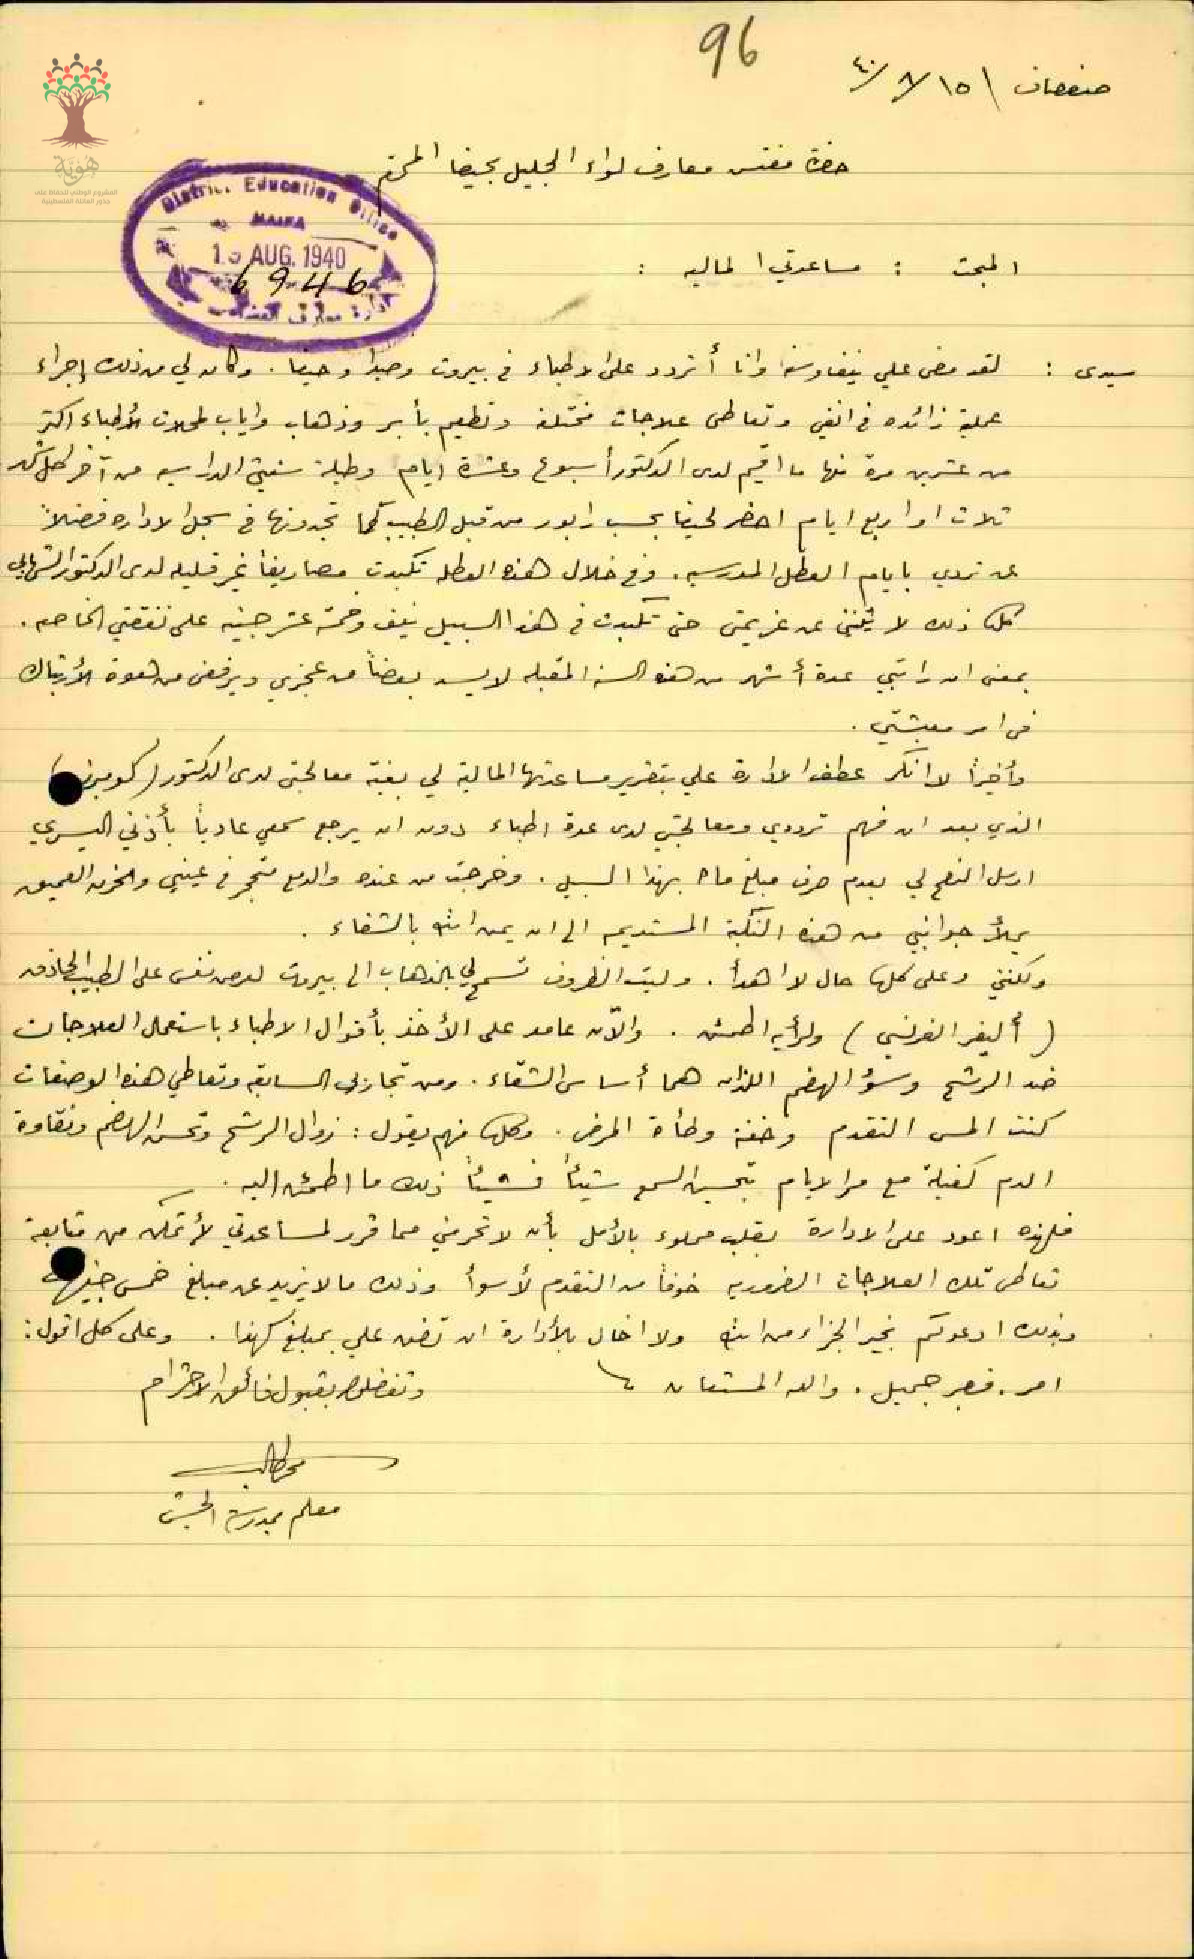 96
صفصاف ١٥/٨/٤٠
حضرة مفتش معارف لواء الجليل بحيفا المحترم
District Education Office
HAIFA
15 AUG. 1940
6946
ادارة معارف
هُويّة
المشروع الوطني للحفاظ على
جذور العائلة الفلسطينية
المبحث : مساعدتي الماليه :
سيدى : لقد مضى علي نيفا وسنة وانا أتردد على الاطباء في بيروت وصيدا وحيفا. وكان لي من ذلك إجراء
عملية زائده في انفي وتعاطى علاجات مختلفة وتطعيم بأبر وذهاب واياب لمحلات الأطباء اكثر
من عشرين مرة منها ما اقيم لدى الدكتور أسبوع وعشرة ايام وطيلة سنتي الدراسيه من آخر كل شهر
ثلاث او اربع ايام احضر لحيفا بحسب رابور من قبل الطبيب كما تجدونها في سجل الاداره فضلاً
عن ترددي بايام العطل المدرسيه. وفي خلال هذه العطله تكبدت مصاريفاً غير قليله لدى الدكتور الشهابي
كل ذلك لا يثنني عن عزيمتى حتى تكبدت في هذا السبيل نيف وخمسة عشر جنيه على نفقتي الخاصه.
بمعنى ان راتبي عدة أشهر من هذه السنة المقبله لا يسد بعضاً من عجزي ويرفعنى من هوة الأرتباك
في امر معيشتي.
وأخيراً لا انكر عطف الادارة علي بتقرير مساعدتها المالية لي بغية معالجتى لدى الدكتور (
الذي بعد ان فهم ترددي ومعالجتي لدى عدة اطباء دون ان يرجع سمعي عادياً بأذني اليسرى
ارسل النصح لي بعدم صرف مبلغ ما بهذا السبيل. وخرجت من عنده والدمع متحجر في عيني والحزن العميق
يملأ جوانبي من هذه النكبة المستديمه الى ان يمن الله بالشفاء.
ولكنني وعلى كلها حال لا اهدأ. وليت الظروف تسمح لي بالذهاب الى بيروت لعرض نفسى على الطبيب الحاذق
( الفرنسي ) ولرأيه اطمئن. والآن عامد على الأخذ بأقوال الاطباء باستعمال العلاجات
ضد الرشح وسؤ الهضم اللذان هما أساس الشقاء. ومن تجاربى السابقه وتعاطي هذه الوصفات
كنت المس التقدم وخفة وطأة المرض. وكلها منهم يقول: زوال الرشح وتحسن الهضم ونقاوة
الدم كفيلة مع مر الايام بتحسين السمع شيئاً فشيئاً ذلك ما اطمئن اليه.
فلهذه اعود على الادارة بقلب مملوء بالأمل بأن لا تحرمني مما قرر لمساعدتي لأتمكن من متابعة
تعاطى تلك العلاجات الضروريه خوفاً من التقدم لأسوأ وذلك ما لا يزيد عن مبلغ خمس جنيهات
وبذلك ادعوكم بخير الجزاء من الله ولا اخال بالأدارة ان تضن علي بمبلغ كهذا. وعلى كل اقول:
امر. فصبر جميل. والله المستعان
وتفضلوا بقبول فائق الاحترام
معلم بمدرسة الجش